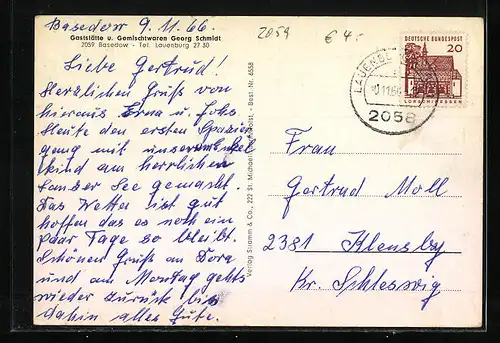 Basedow 9.11.66.
Gaststätte u. Gemischtwaren Georg Schmidt
2059 Basedow - Tel. Lauenburg 27 30
Liebe Gertrud!
Herzlichen Gruß von
hieraus Erna u. Johs.
Heute den ersten Spazier
gang mit unserm Enkel
kind am herrlichen
Lanzer See gemacht.
Das Wetter ist gut
hoffen das es noch ein
paar Tage so bleibt.
Schönen Gruß an Dora
und am Montag gehts
wieder zurück bis
dahin alles Gute.
Verlag Stramm & Co., 222 St. Michaelisdonn/Holst. - Best. Nr. 6558
2059
€ 4.-
DEUTSCHE BUNDESPOST
20
LORSCH/HESSEN
LAUENBURG
2058
Frau
Gertrud Moll
2381 Klensby
Kr. Schleswig